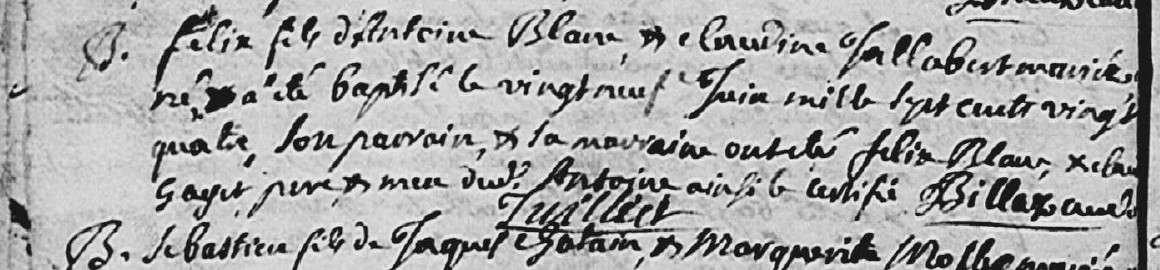 B. félix fils d'Antoine Blanc, & claudine Jallabert mariés,
né & a été baptisé le vingt neuf Juin mille sept cents vingt
quatre, son parrain, & sa marraine ont étés félix Blanc, & clau
Gayet pere & mere dud.t Antoine ainsi le certifie
Juillet
B. sebastien fils de Jaques & Marguerite